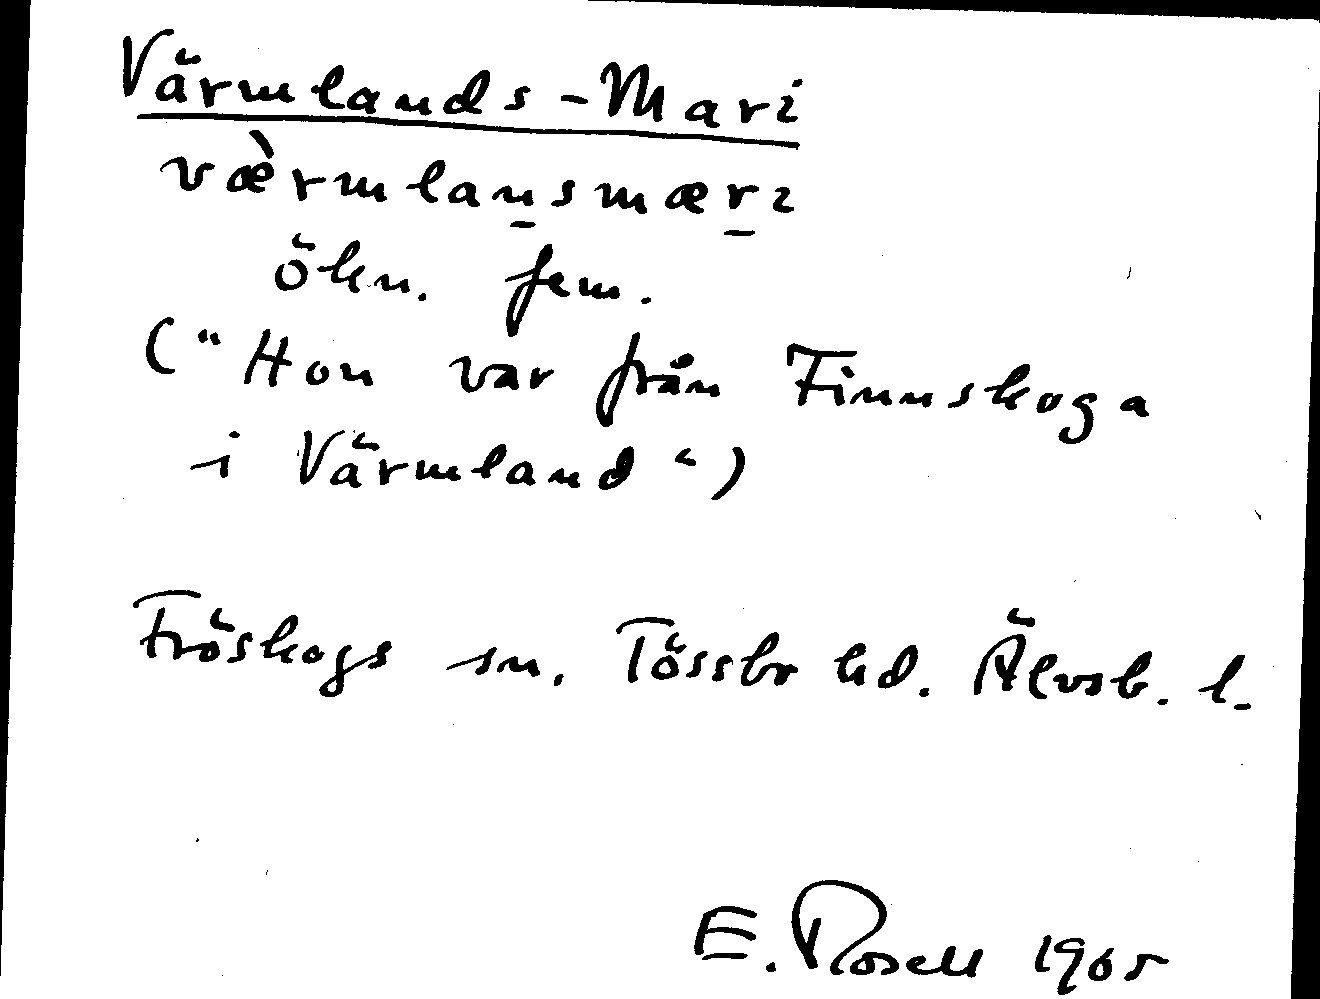 Värmlands-Mari
væ̀rmlan̲smær̲ı
ökn. fem.
("Hon var från Finnskoga
i Värmland")
Fröskogs sn. Tössbr hd. Älvsb. l.
E. Rosell 1965